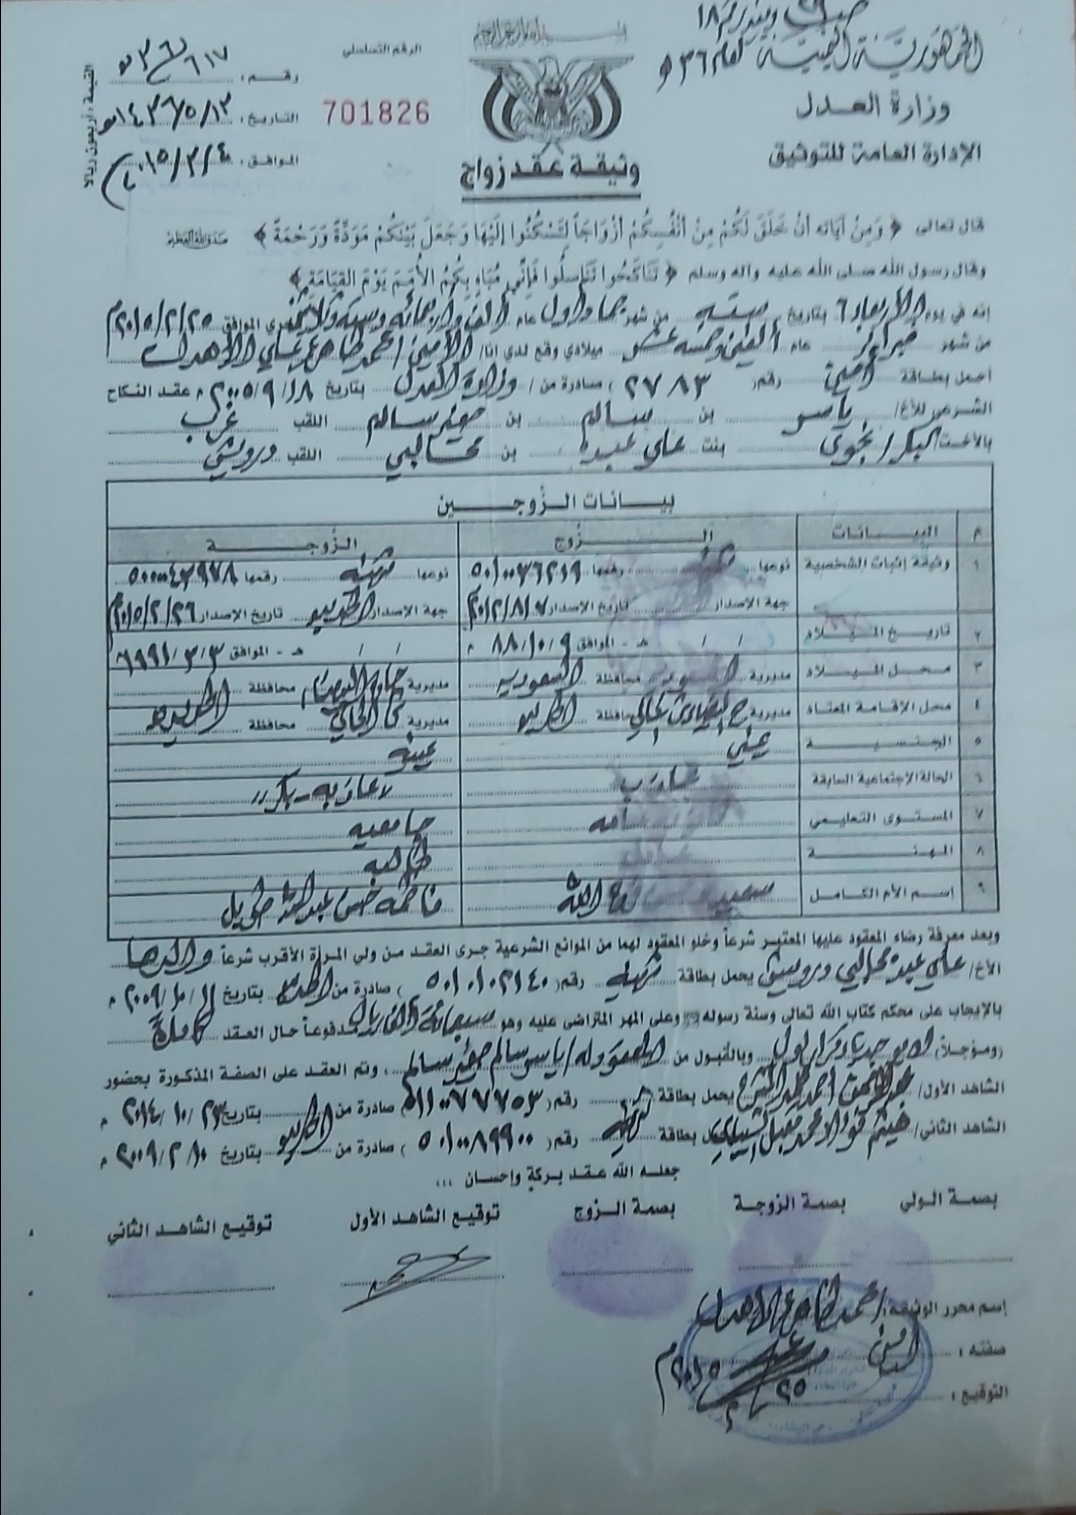 الجمهورية اليمنية
وزارة العدل
الإدارة العامة للتوثيق
بسم الله الرحمن الرحيم
وثيقة عقد زواج
الرقم التسلسلي
701826
رقم: ٦١٧
التاريخ: ١٤٣٦/٥/١٣هـ
الموافق: ٢٠١٥/٣/٤م
القيمة: أربعون ريالا
قال تعالى ﴿ وَمِنْ آيَاتِهِ أَنْ خَلَقَ لَكُمْ مِنْ أَنْفُسِكُمْ أَزْوَاجاً لِتَسْكُنُوا إِلَيْهَا وَجَعَلَ بَيْنَكُمْ مَوَدَّةً وَرَحْمَةً ﴾ صدق الله العظيم
وقال رسول الله صلى الله عليه وآله وسلم ﴿ تَنَاكَحُوا تَنَاسَلُوا فَإِنِّي مُبَاهٍ بِكُمُ الأُمَمَ يَوْمَ القِيَامَةِ ﴾
إنه في يوم الأربعاء ٦ بتاريخ سته من شهر جماد أول عام ألف وأربعمائه وسته وثلاثين هجري الموافق ٢٠١٥/٢/٢٥م
من شهر فبراير عام ألفين وخمسه عشر ميلادي وقع لدي انا/ الأمين/ محمد طاهر علي الأهدل
احمل بطاقة أمين رقم ( ٢٧٨٣ ) صادرة من/ وزارة العدل بتاريخ ٢٠٠٥/٩/١٨م عقد النكاح
الشرعي للأخ/ ياسر بن سالم بن صغير سالم اللقب غرب
بالأخت البكر/ نجوى بنت علي عبده بن محالبي اللقب درويش
بيانات الزوجين
م البيانات الزوج الزوجة
١ وثيقة إثبات الشخصية نوعها رقمها ٥٠١٠٠٣٦٢١٩ نوعها شخصية رقمها ٥٠٠٠٠٤٣٩٧٨
جهة الاصدار تاريخ الاصدار ٢٠١٢/٨/٧م جهة الاصدار الحديده تاريخ الاصدار ٢٠١٥/٢/٢٦م
٢ تاريخ الميلاد / / هـ - الموافق ٨٨/١٠/٩م / / هـ - الموافق
٣ محل الميلاد مديرية محافظة السعودية مديرية محافظة الحديده
٤ محل الإقامة المعتاد مديرية محافظة الحديده مديرية الحالي محافظة الحديده
٥ الجنسية يمني يمنيه
٦ الحالة الإجتماعية السابقة عازب عازبه - بكر
٧ المستوى التعليمي جامعيه
٨ المهنة طالبه
٩ إسم الأم الكامل سعيده فتح الله فاطمه حسن عبدالله طويل
وبعد معرفة رضاء المعقود عليها المعتبر شرعاً وخلو المعقود لهما من الموانع الشرعية جرى العقد من ولي المرأة الأقرب شرعاً والدها
الأخ/ علي عبده محالبي درويش يحمل بطاقة شخصية رقم ( ٥٠١٠١٠٢١٤٠ ) صادرة من الحديده بتاريخ ٢٠٠٩/١٠/١١م
بالإيجاب على محكم كتاب الله تعالى وسنة رسوله ﷺ وعلى المهر المتراضى عليه وهو سبعمائة ألف ريال مدفوعاً حال العقد كاملاً
(ومؤجلاً) لا يوجد وبالقبول من المعقود له/ ياسر سالم صغير سالم، وتم العقد على الصفة المذكورة بحضور
الشاهد الأول/ أحمد يحمل بطاقة رقم ( ٥١١٠٠٧٧٧٥٣ ) صادرة من بتاريخ ٢٠١٤/١٠/٢٣م
الشاهد الثاني/ هيثم محمد مقبل يحمل بطاقة شخصية رقم ( ٥٠١٠٠٨٩٩٠٠ ) صادرة من الحديده بتاريخ ٢٠٠٩/٢/١٠م
جعله الله عقد بركةٍ وإحسان ...
بصمة الولي بصمة الزوجة بصمة الزوج توقيع الشاهد الأول توقيع الشاهد الثاني
إسم محرر الوثيقة: محمد طاهر علي الأهدل
صفته: أمين
التوقيع: